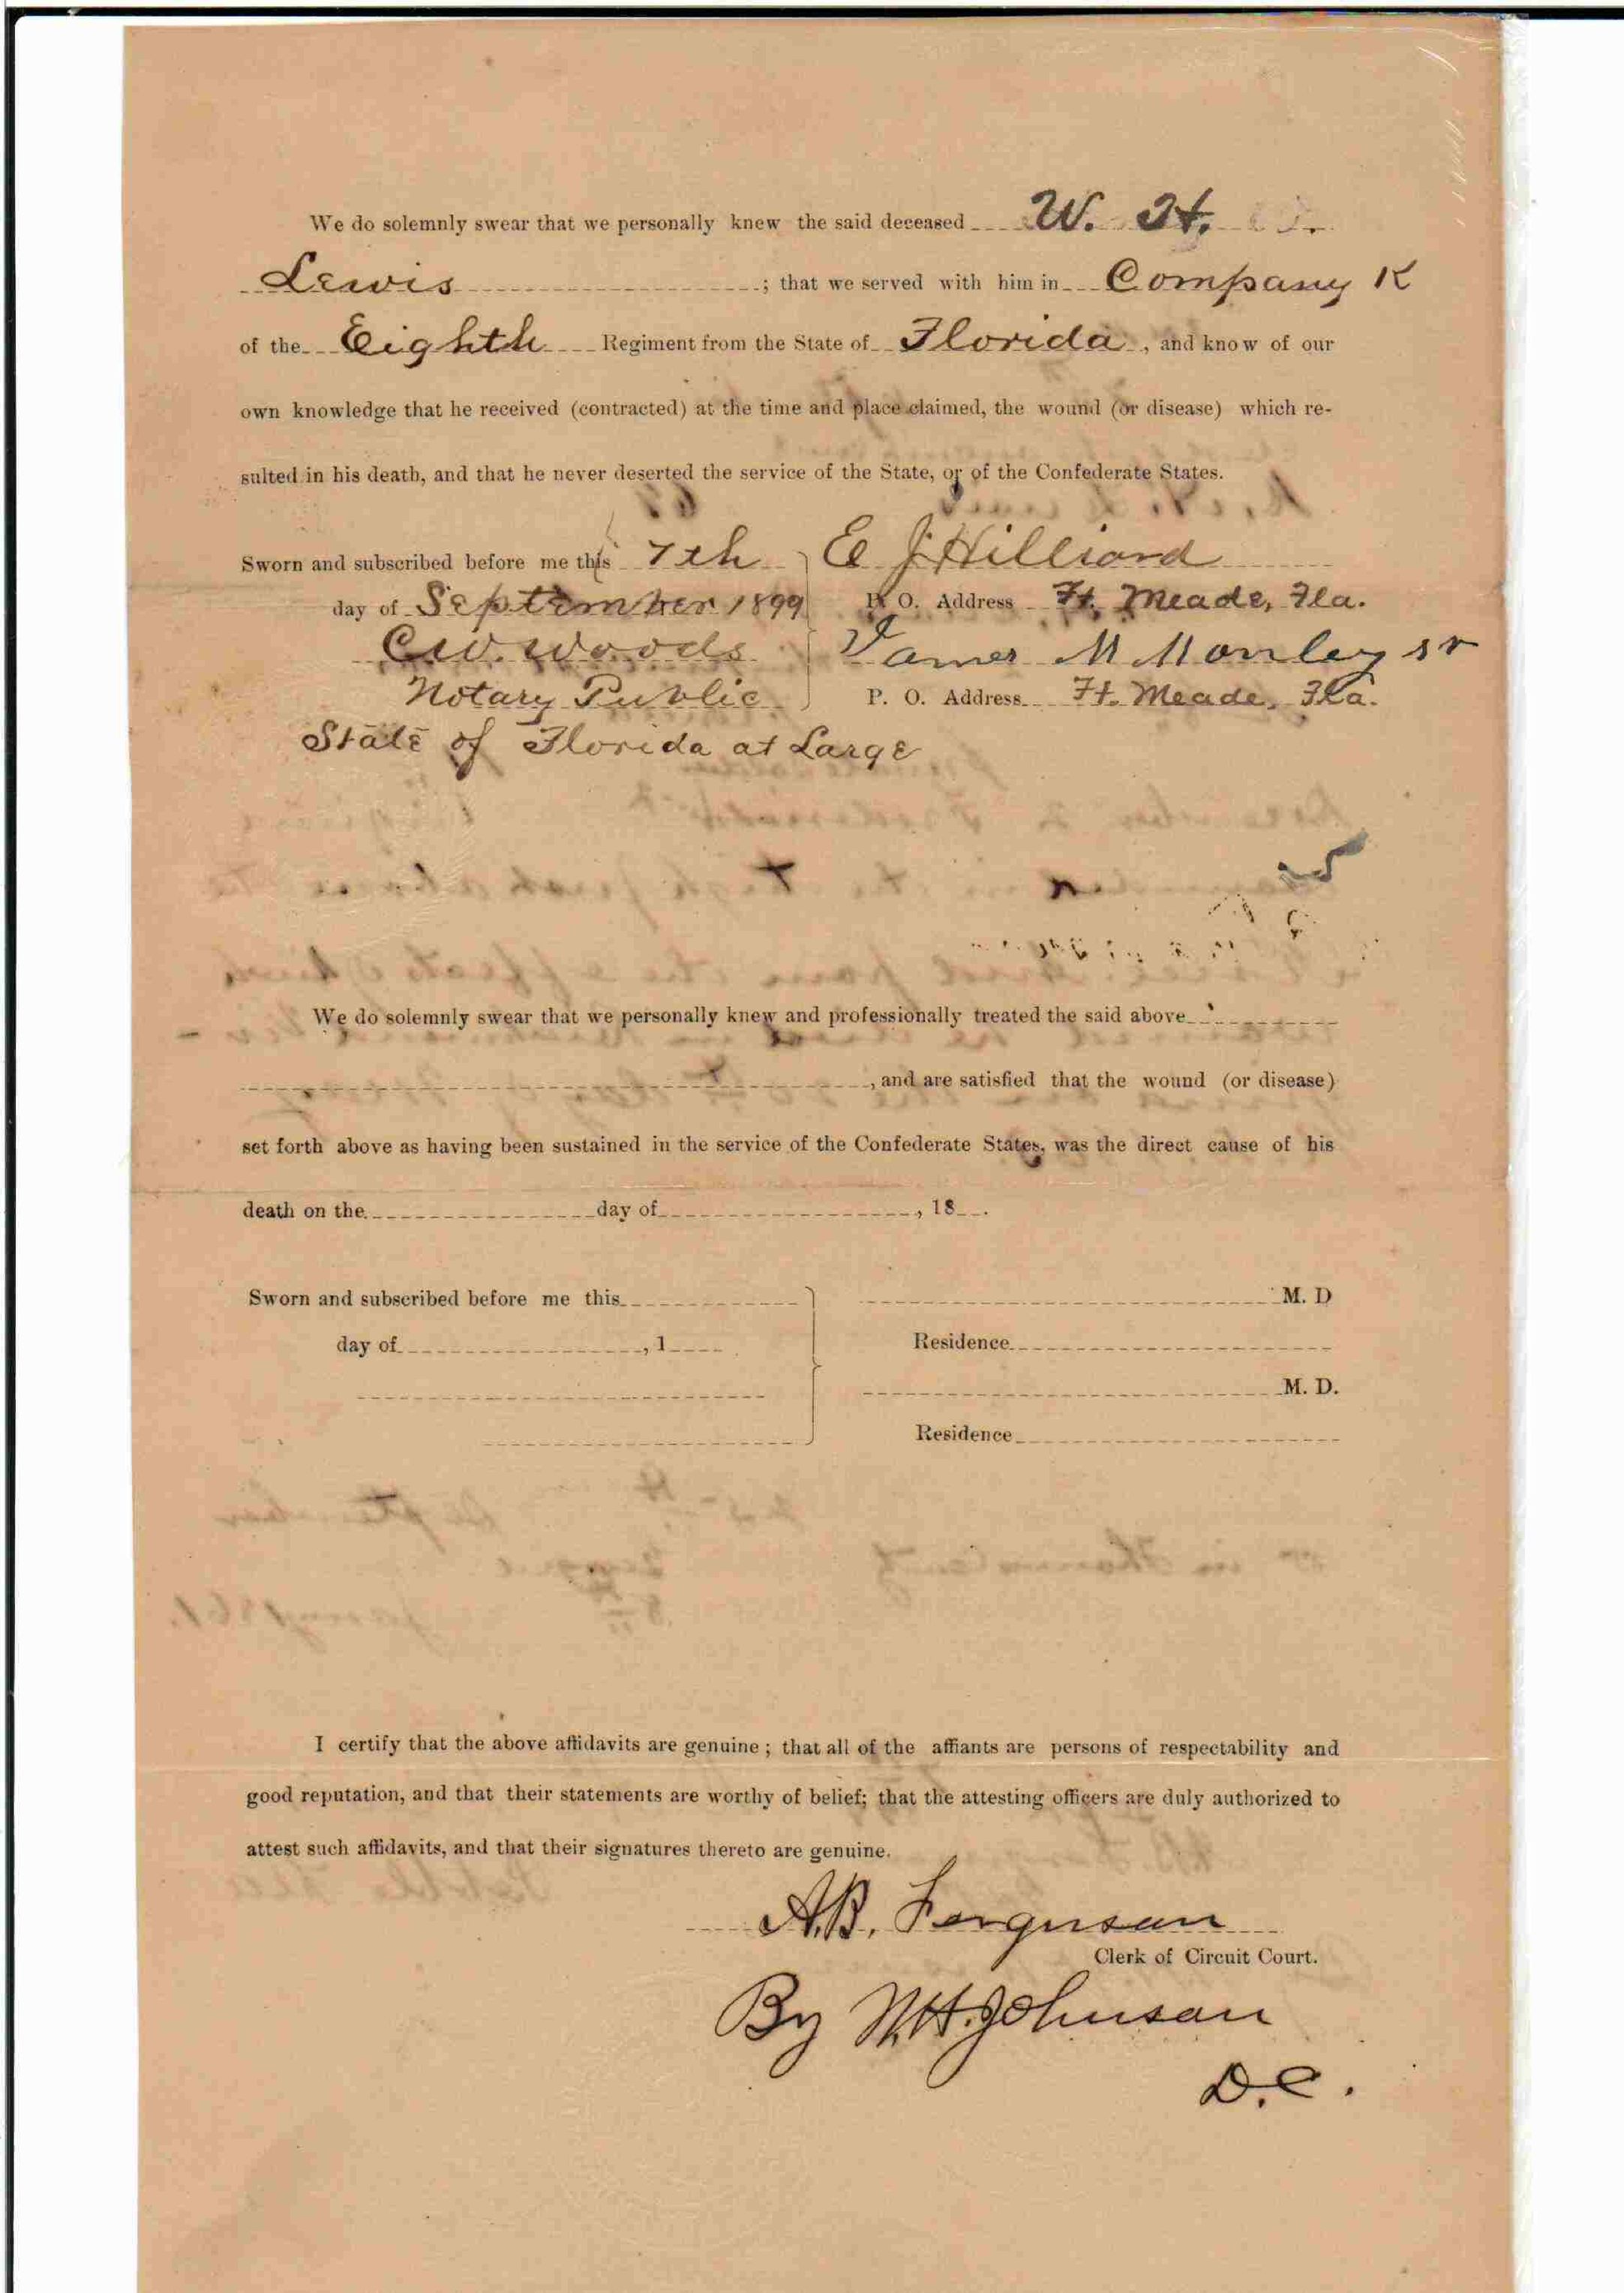 We do solemnly swear that we personally knew the said deceased W. H.
Lewis ; that we served with him in Company K
of the Eighth Regiment from the State of Florida, and know of our
own knowledge that he received (contracted) at the time and place claimed, the wound (or disease) which re-
sulted in his death, and that he never deserted the service of the State, or of the Confederate States.
Sworn and subscribed before me this 7th E J Hilliard
day of September 1899 P. O. Address Ft. Meade, Fla.
C.W. Woods James M Manley sr
Notary Public P. O. Address Ft. Meade, Fla.
State of Florida at Large
We do solemnly swear that we personally knew and professionally treated the said above
, and are satisfied that the wound (or disease)
set forth above as having been sustained in the service of the Confederate States, was the direct cause of his
death on the day of , 18 .
Sworn and subscribed before me this M. D
day of , 1 Residence
M. D.
Residence
I certify that the above affidavits are genuine ; that all of the affiants are persons of respectability and
good reputation, and that their statements are worthy of belief; that the attesting officers are duly authorized to
attest such affidavits, and that their signatures thereto are genuine.
A.B. Ferguson
Clerk of Circuit Court.
By W.H. Johnson
D.C.